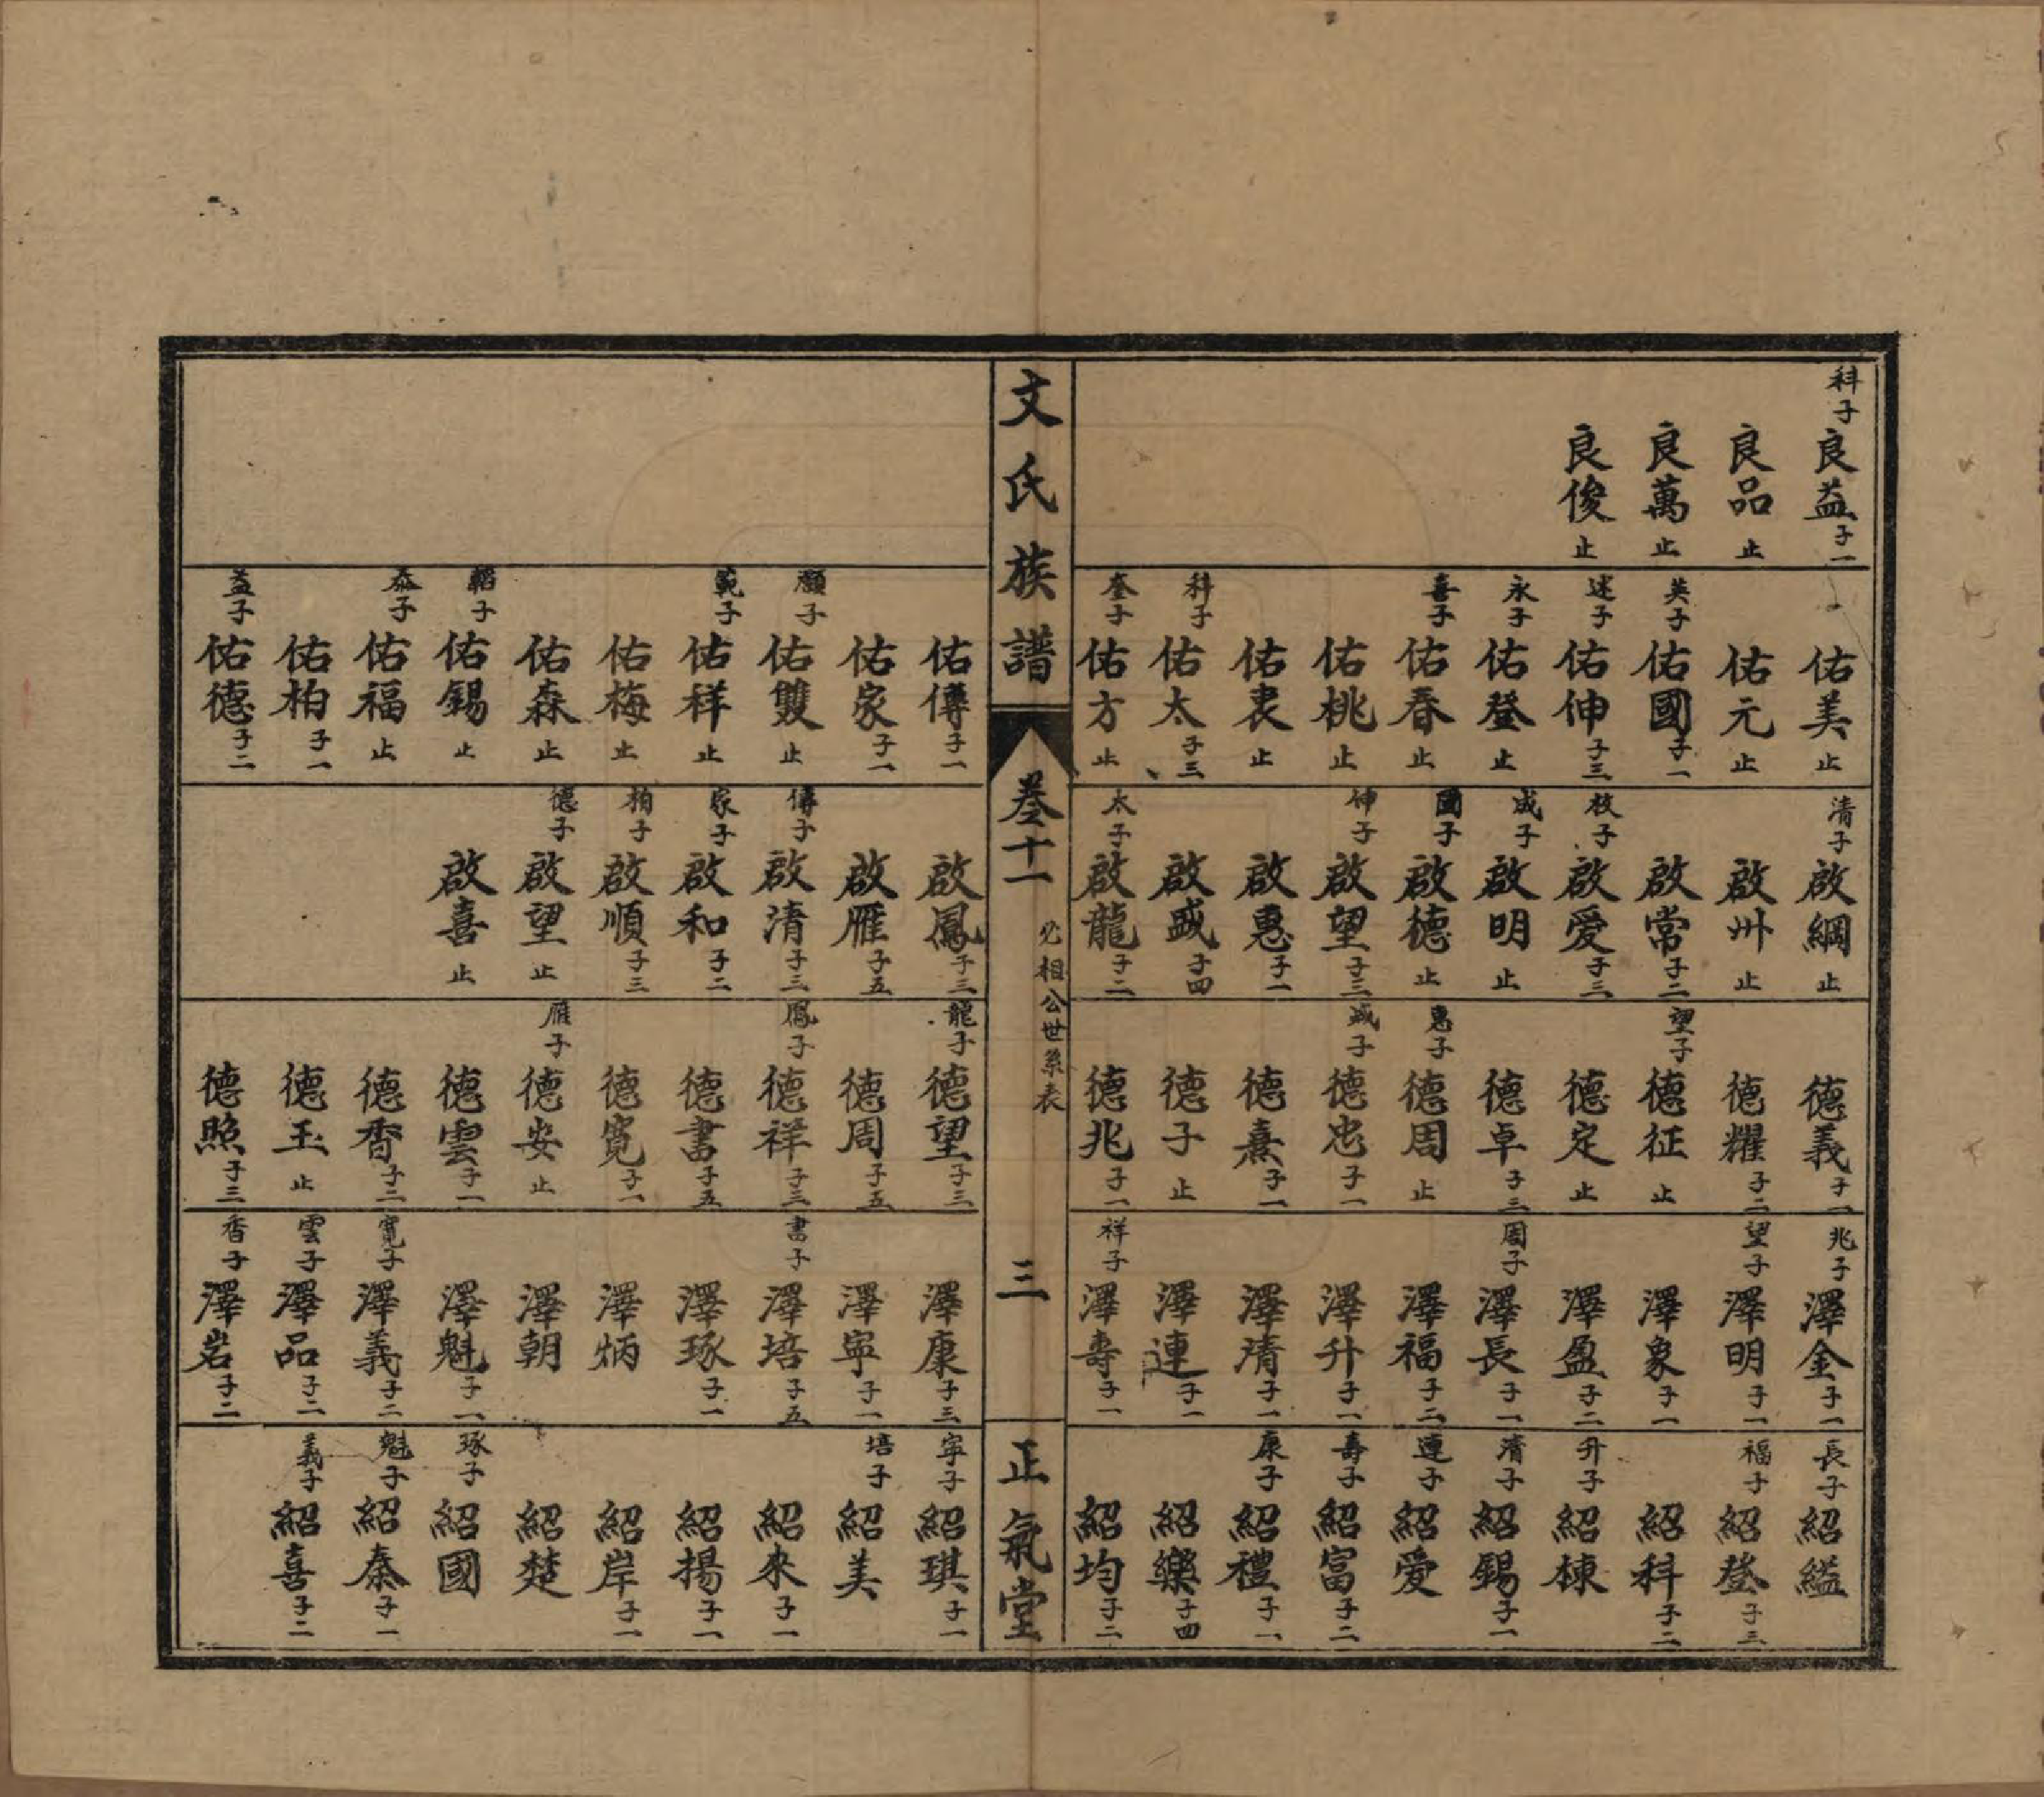 科子良益子一
良品止
良萬止
良俊止
佑美止
佑元止
英子佑國子一
述子佑伸子三
永子佑登止
喜子佑春止
佑桃止
佑表止
科子佑太子三
奎子佑方止
清子啟綱止
啟州止
啟常子二
枚子啟愛子三
成子啟明止
國子啟德止
伸子啟望子三
啟惠子一
啟盛子四
太子啟龍子二
德義子一
德耀子二
望子德征止
德定止
德卓子三
惠子德周止
盛子德忠子一
德熹子一
德子止
德兆子一
兆子澤金子一
望子澤明子一
澤象子一
澤盈子二
周子澤長子一
澤福子二
澤升子一
澤清子一
澤連子一
祥子澤壽子一
長子紹縊
福子紹登子三
紹科子二
升子紹棟
清子紹錫子一
連子紹愛
壽子紹富子二
康子紹禮子一
紹樂子四
紹均子二
文氏族譜
卷十一
必相公世系表
三
正氣堂
佑傳子一
佑家子一
顏子佑雙止
範子佑祥止
佑梅止
佑森止
韜子佑錫止
泰子佑福止
佑柏子一
益子佑德子二
啟鳳子三
啟雁子五
傳子啟清子三
家子啟和子二
柏子啟順子三
德子啟望止
啟喜止
龍子德望子三
德周子五
鳳子德祥子三
德書子五
德寬子一
雁子德安止
德雲子一
德香子二
德玉止
德照子三
澤康子三
澤寧子一
書子澤培子五
澤琢子一
澤炳
澤朝
澤魁子一
寬子澤義子二
雲子澤品子二
香子澤岩子二
寧子紹琪子一
培子紹美
紹來子一
紹揚子一
紹岸子一
紹楚
琢子紹國
魁子紹泰子一
義子紹喜子二